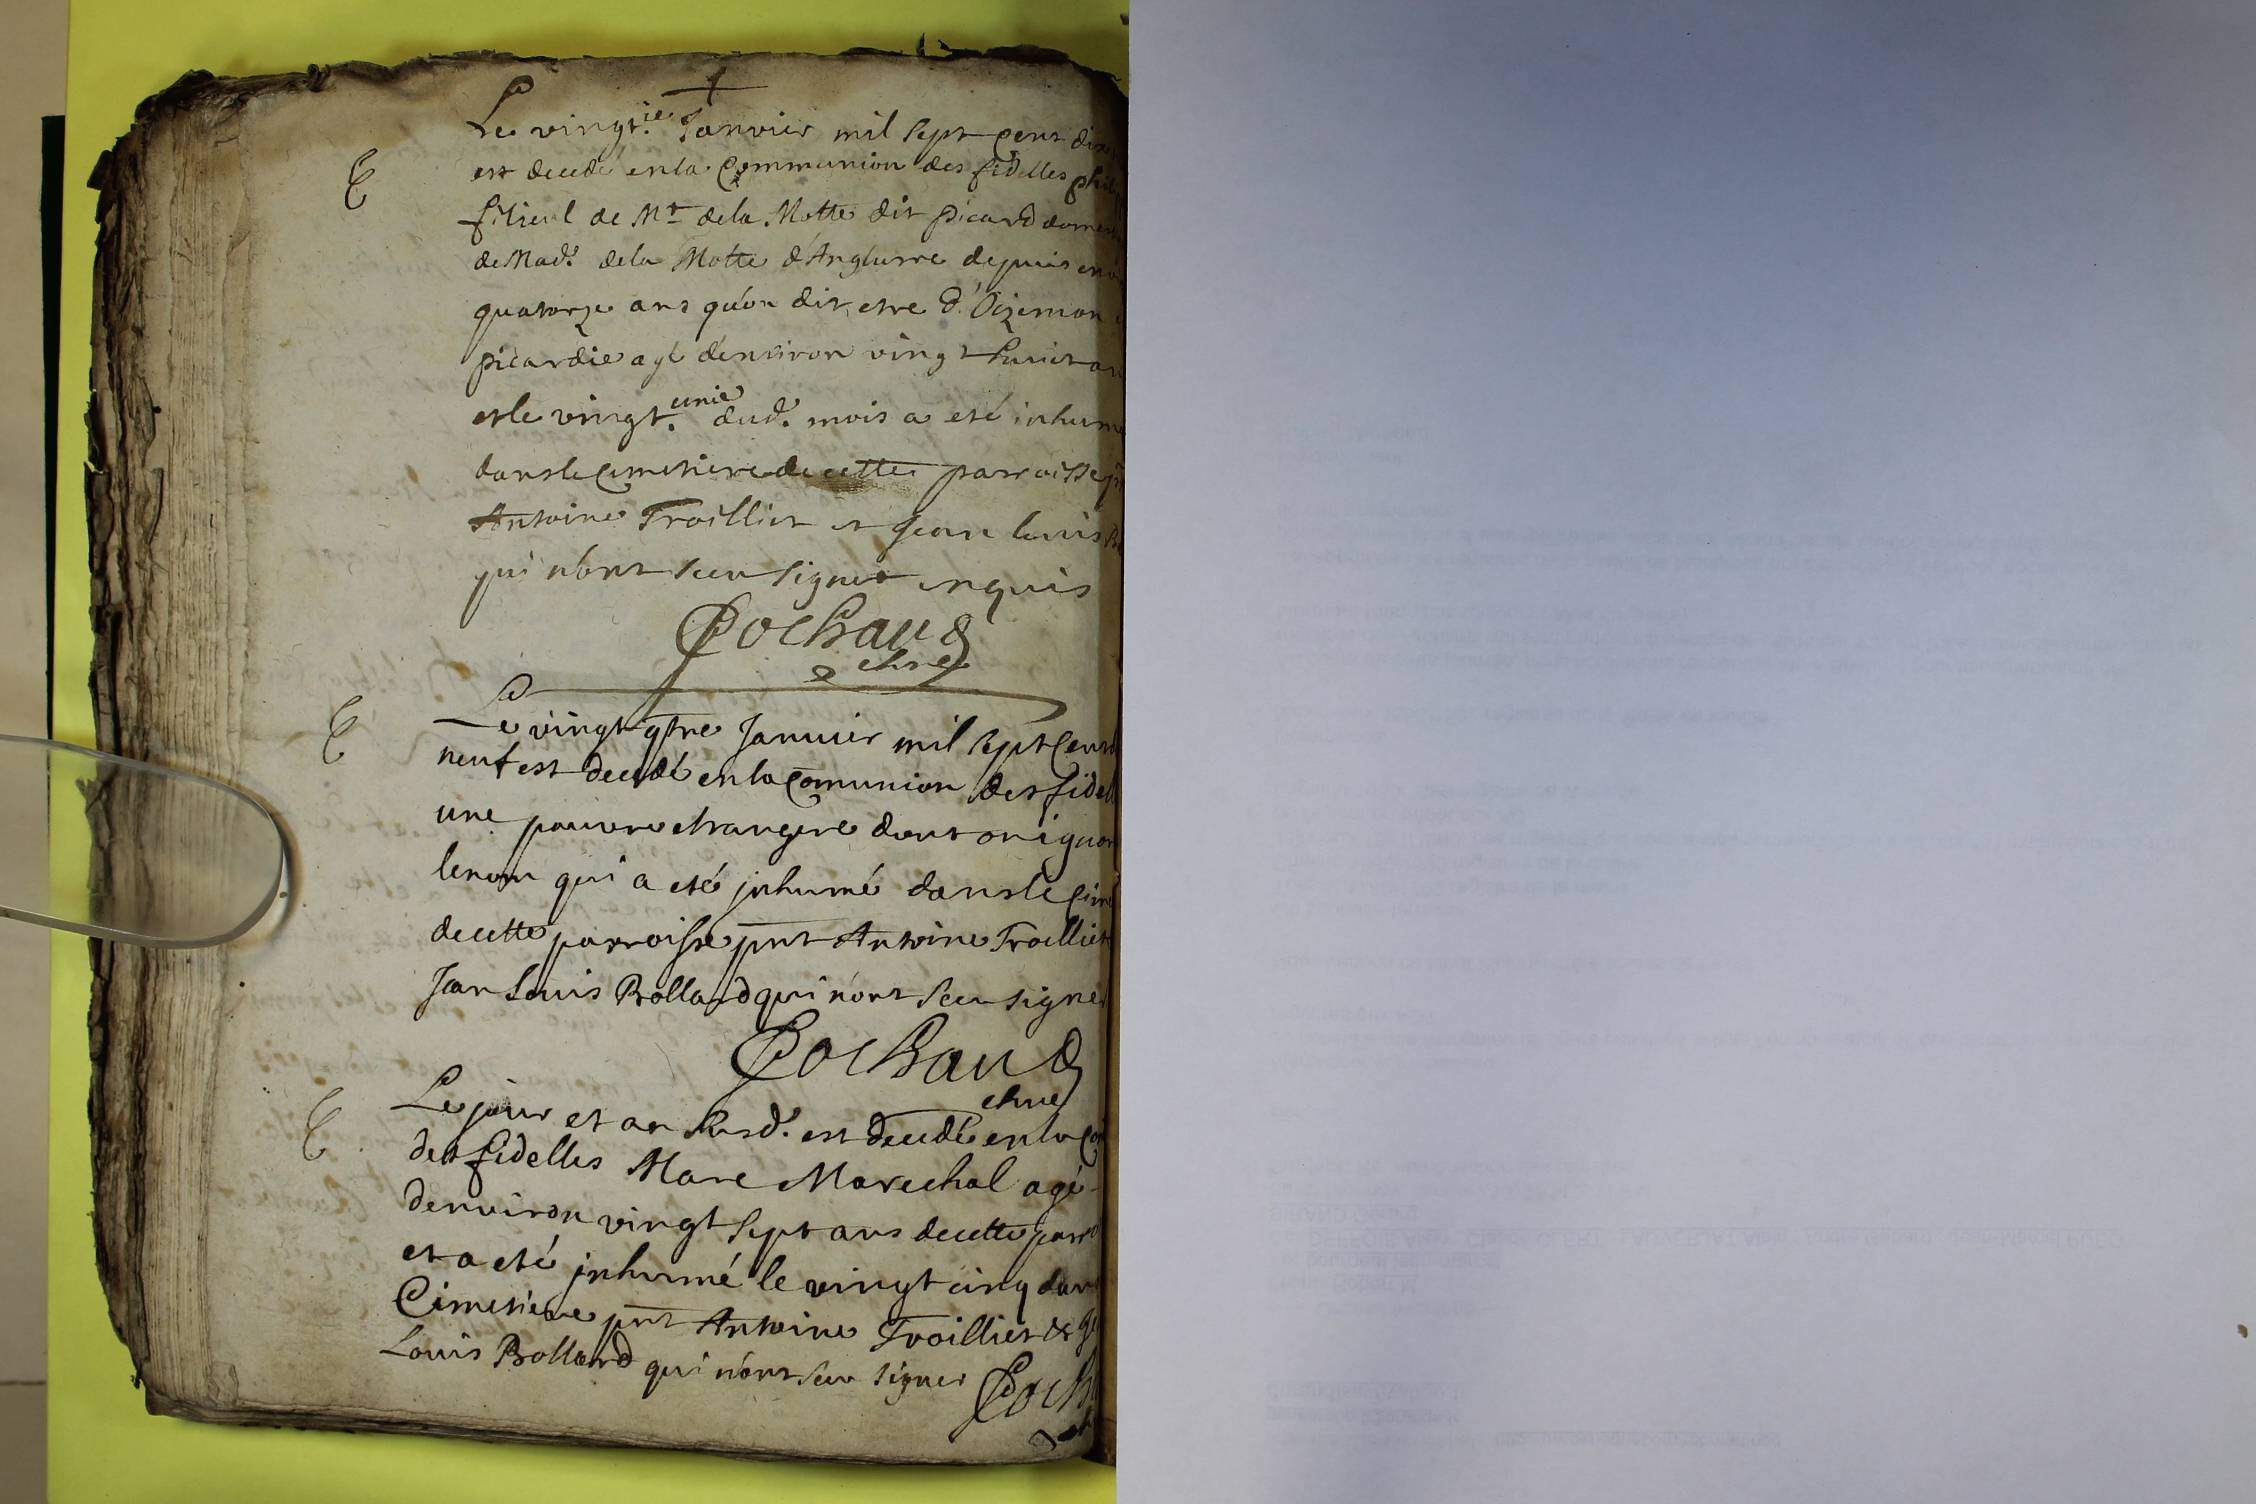 Le vingt.ie Janvier mil sept cent dix
est decedé en la Communion des fidelles phili
filieul de Mr de la Motte dit picard domes
de Made. de la Motte d'Anglurre depuis env
quatorze ans qu'on dit etre d'Oizemon
picardie agé d'environ vingt huict an
et le vingt.unie dud. mois a eté inhumé
dans le Cimetiere de cette parroisse
Antoine Troilliet et Jean Louis
qui n'ont seeu signer enquis
Cochaud
chne
Le vingt qtre Janvier mil sept Cent
neuf est decedé en la Comunion des fidel
une pauvre etrangere dont on ignor
le nom qui a eté jnhumé dans le Cim
de cette parroisse pnt Antoine Troilliet
Jean Louis Bollard qui n'ont seeu signer
Cochaud
chne
Le jour et an susd. est decedé en la Co
des fidelles Marc Marechal agé
d'environ vingt sept ans de cette parro
et a eté jnhumé le vingt cinq dans
Cimetiere pnt Antoine Troilliet & Je
Louis Bollard qui n'ont seeu signer Coch